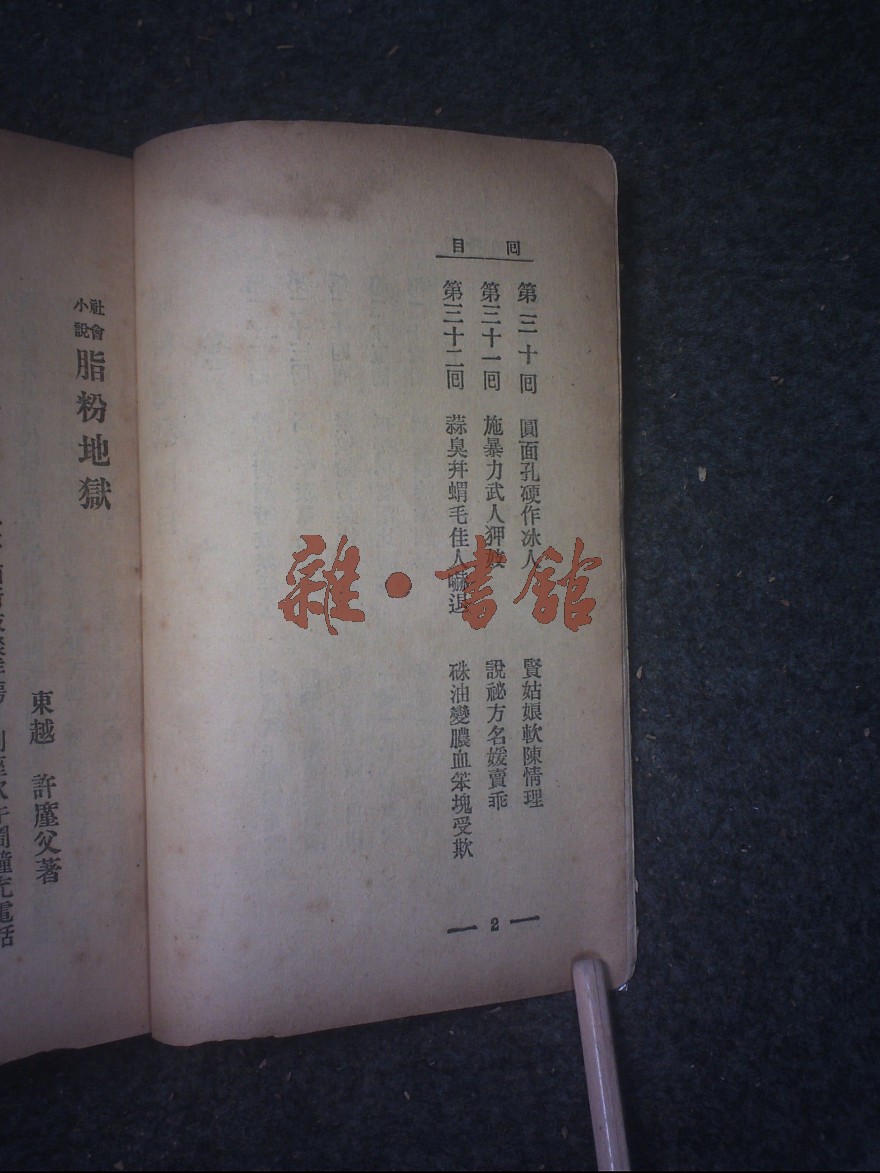 囘目
第三十囘 圓面孔硬作冰人 賢姑娘軟陳情理
第三十一囘 施暴力武人狎 說祕方名媛賣乖
第三十二囘 蒜臭幷蝟毛佳人嚇退 硃油變膿血笨塊受欺
2
社會小說 脂粉地獄
東越 許廑父著
電話
雜·書館